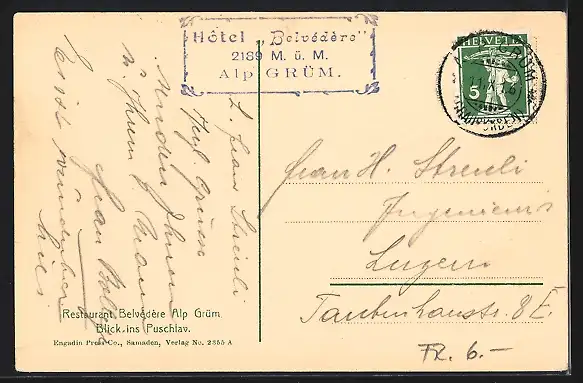 Hôtel „Belvédère"
2189 M. ü. M.
Alp GRÜM.
HELVETIA
5
L. Frau Streuli
Herzl. Grüsse
senden Ihnen
u. Ihrem
Frau
hier
Frau H. Streuli
Ingenieurs
Luzern
Taubenhausstr. 8 E.
Restaurant Belvédère Alp Grüm.
Blick ins Puschlav.
Engadin Press Co., Samaden, Verlag No. 2355 A
FR. 6.-